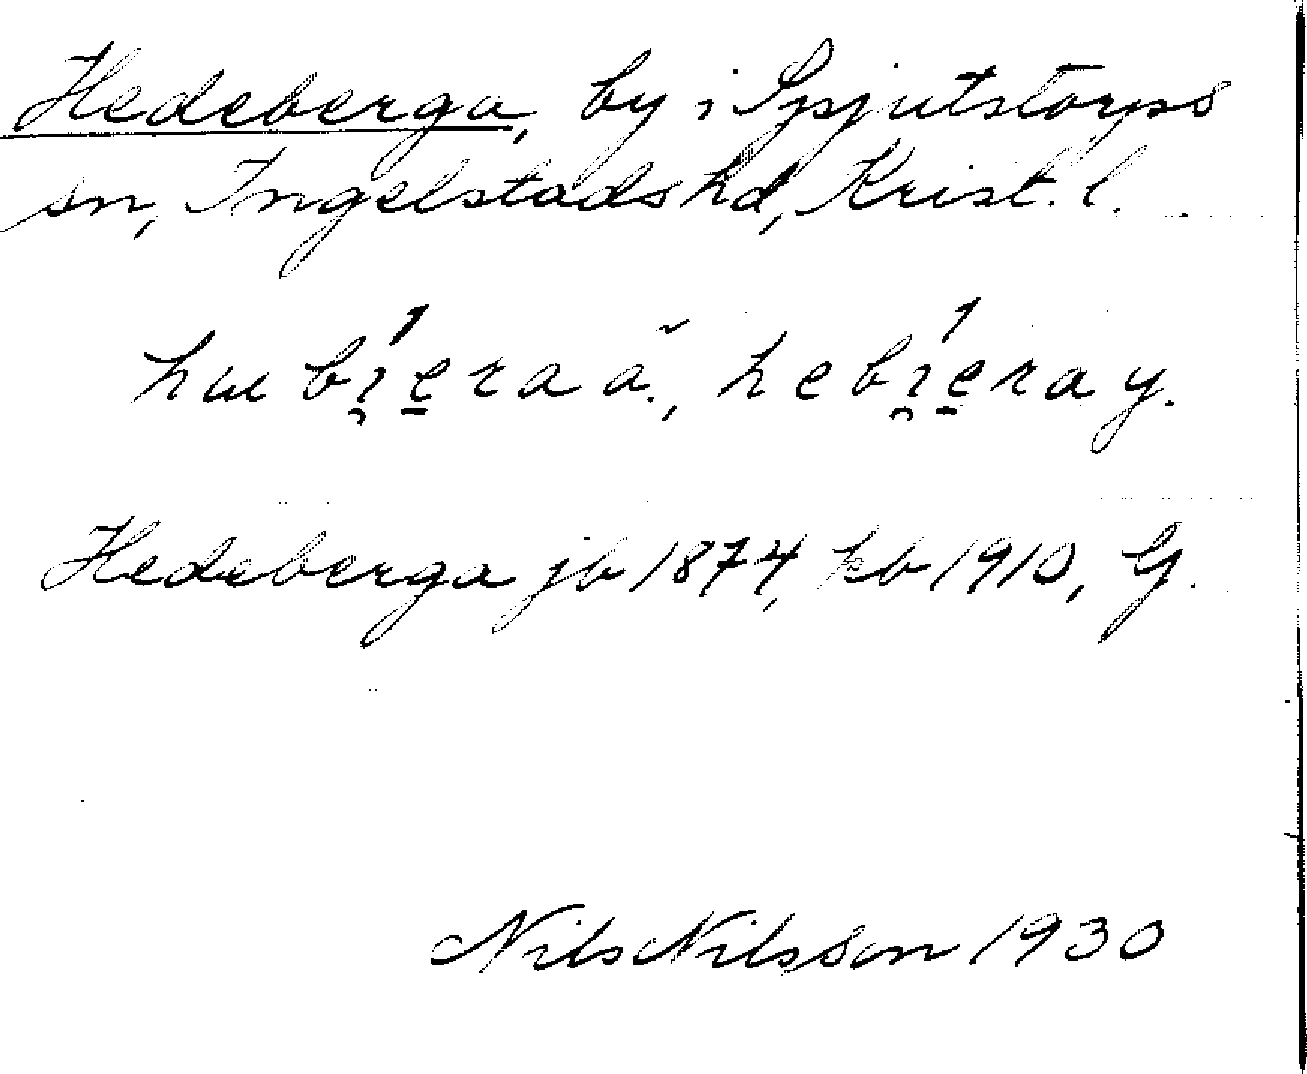 Hedeberga, by i Spjutstorps
sn, Ingelstads hd, Krist. l.
Hedeberga jb 1874, kb 1910, G.
Nils Nilsson 1930